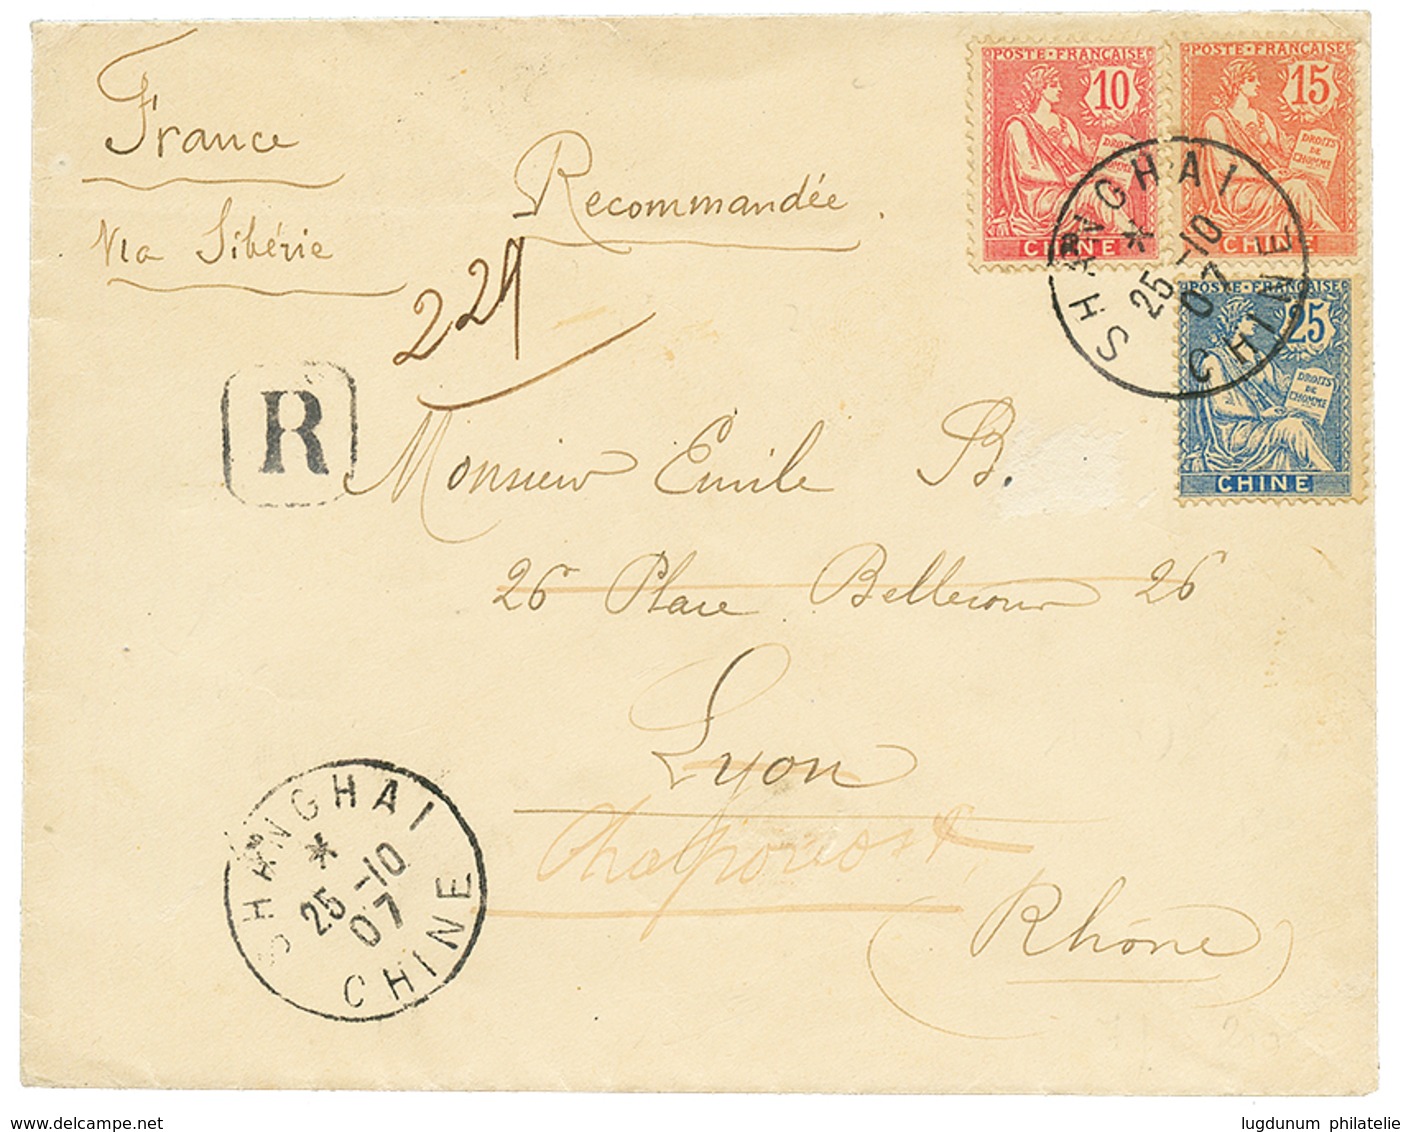 France
Via Sibérie
Recommandée
229
R
POSTE·FRANÇAISE
10
DROITS
DE
L'HOMME
CHINE
POSTE·FRANÇAISE
15
DROITS
DE
L'HOMME
CHINE
POSTE·FRANÇAISE
25
DROITS
DE
L'HOMME
CHINE
SHANGHAI
*
25 -10
07
CHINE
Monsieur Emile B.
26 Place Bellecour 26
Lyon
Chaponost
(Rhône)
SHANGHAI
*
25 -10
07
CHINE
www.delcampe.net
lugdunum philatelie